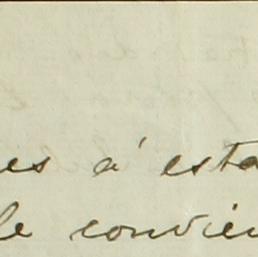 es á esta
le convien